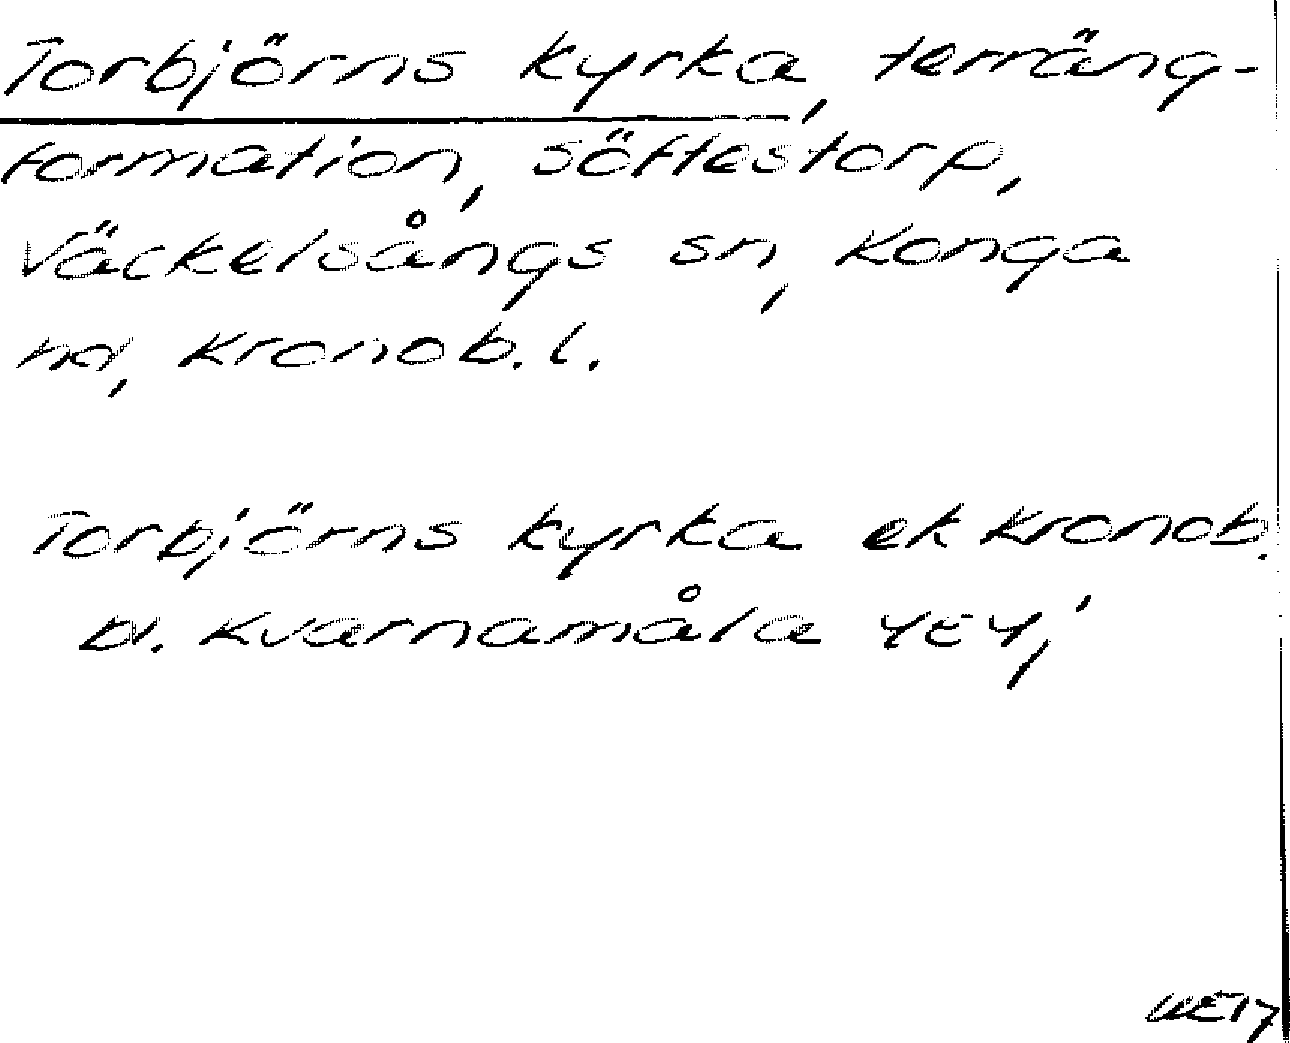 Torbjörns kyrka, terräng-
formation, Söftestorp,
Väckelsångs sn, Konga
hd, Kronob. l.
Torbjörns kyrka ek Kronob.
bl. Kvarnamåla 4E4,